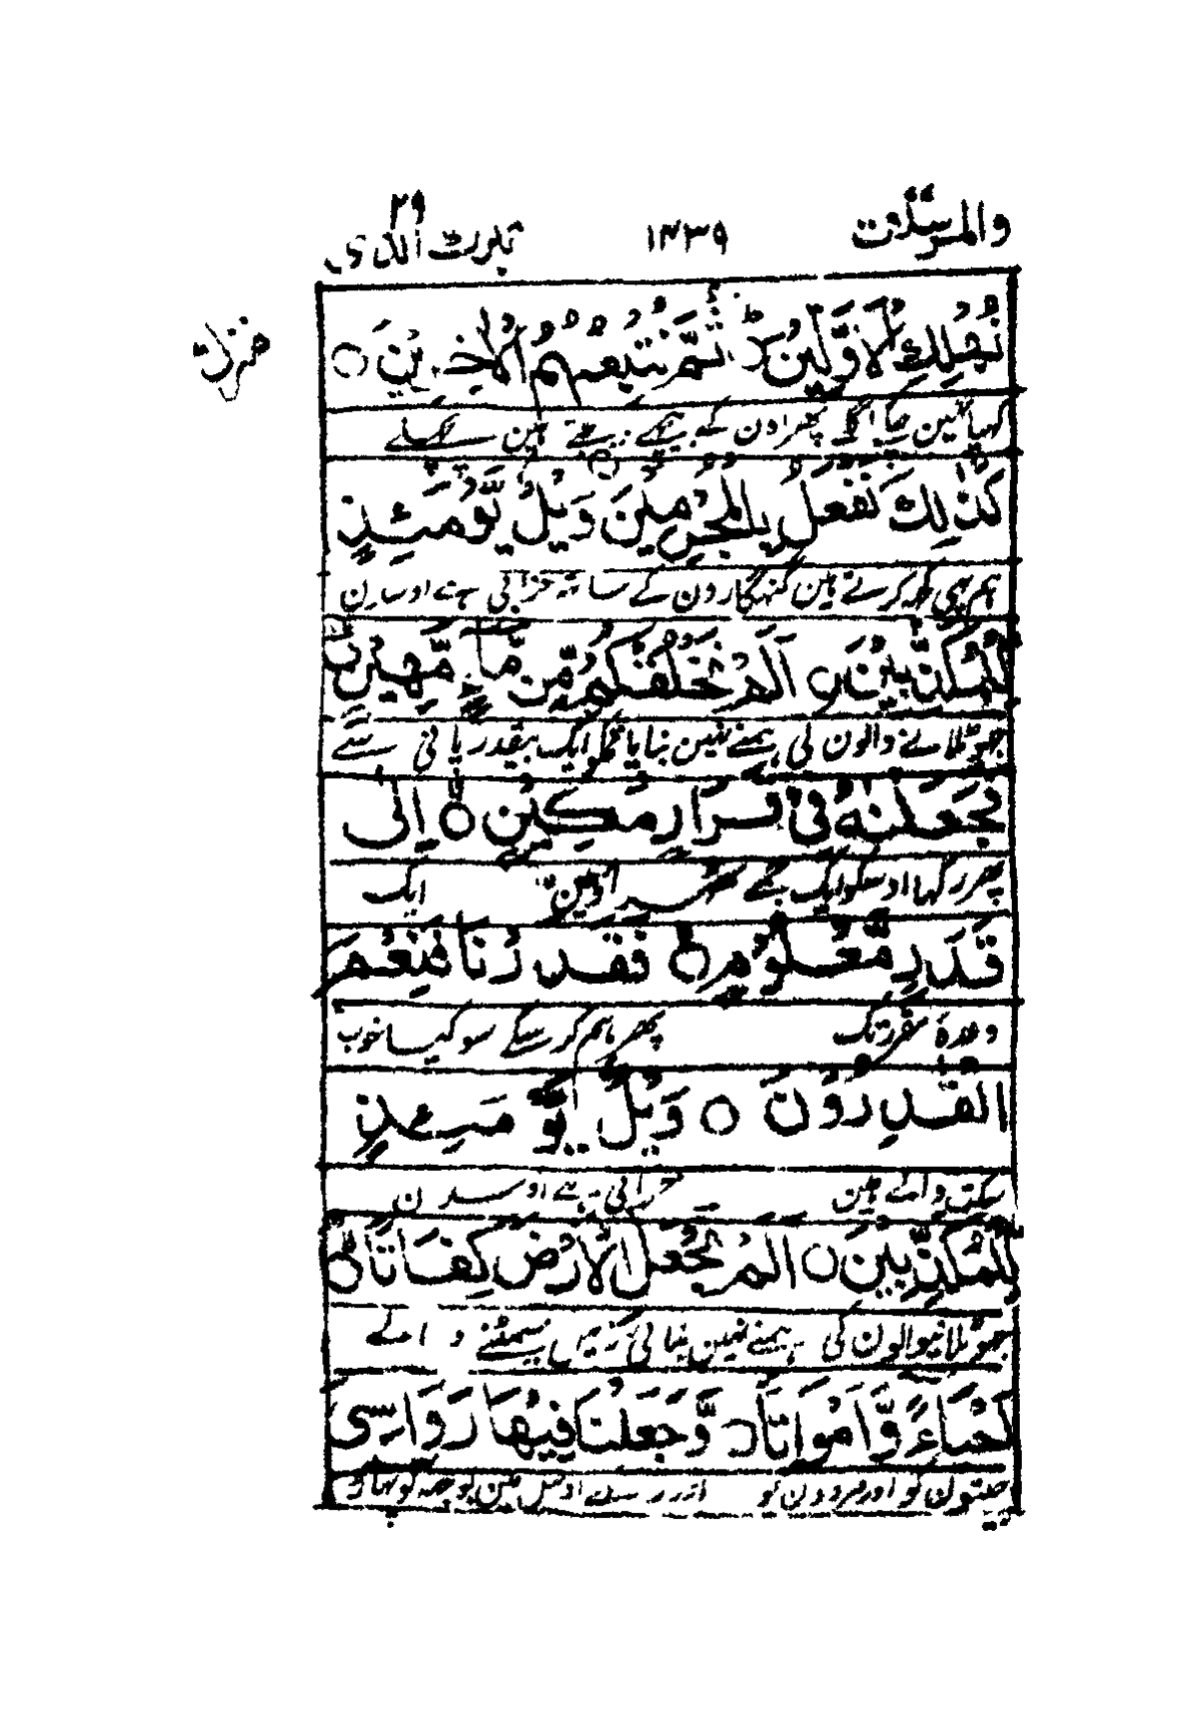 والمرسلٰت ۱۴۳۹ تبٰرک الذی ۲۹
منزل
نُهْلِكِ الْاَوَّلِيْنَ ؕ ثُمَّ نُتْبِعُهُمُ الْاٰخِرِيْنَ ○
کہپا نہین چکا اگلے پھر اون کے پیچھے بھیجتے ہین پچھلے
كَذٰلِكَ نَفْعَلُ بِالْمُجْرِمِيْنَ وَيْلٌ يَّوْمَئِذٍ
ہم یہی کچھ کرتے ہین گنہگارون کے ساتھ خرابی ہے اوس دن
لِّلْمُكَذِّبِيْنَ ○ اَلَمْ نَخْلُقْكُّمْ مِّنْ مَّآءٍ مَّهِيْنٍ
جھوٹلانے والون کی ہمنے نہین بنایا تمکو ایک بیقدر پانی سے
فَجَعَلْنٰهُ فِيْ قَرَارٍ مَّكِيْنٍ ○ اِلٰى
پھر رکہا اوسکو ایک جمے ایک
قَدَرٍ مَّعْلُوْمٍ ○ فَقَدَرْنَا فَنِعْمَ
وعدۂ مقرر تک پھر ہم کر سکے سو کیسا خوب
الْقٰدِرُوْنَ ○ وَيْلٌ يَّوْمَئِذٍ
سکنے والے ہین خرابی ہے اوس دن
لِّلْمُكَذِّبِيْنَ ○ اَلَمْ نَجْعَلِ الْاَرْضَ كِفَاتًا
جھوٹلانیوالون کی ہمنے نہین بنائی زمین سمیٹنے والے
اَحْيَاءً وَّاَمْوَاتًا وَّجَعَلْنَا فِيْهَا رَوَاسِيَ
جیتون کو اور مردون کو اور رکھے اوس مین بوجھ کو پہاڑ